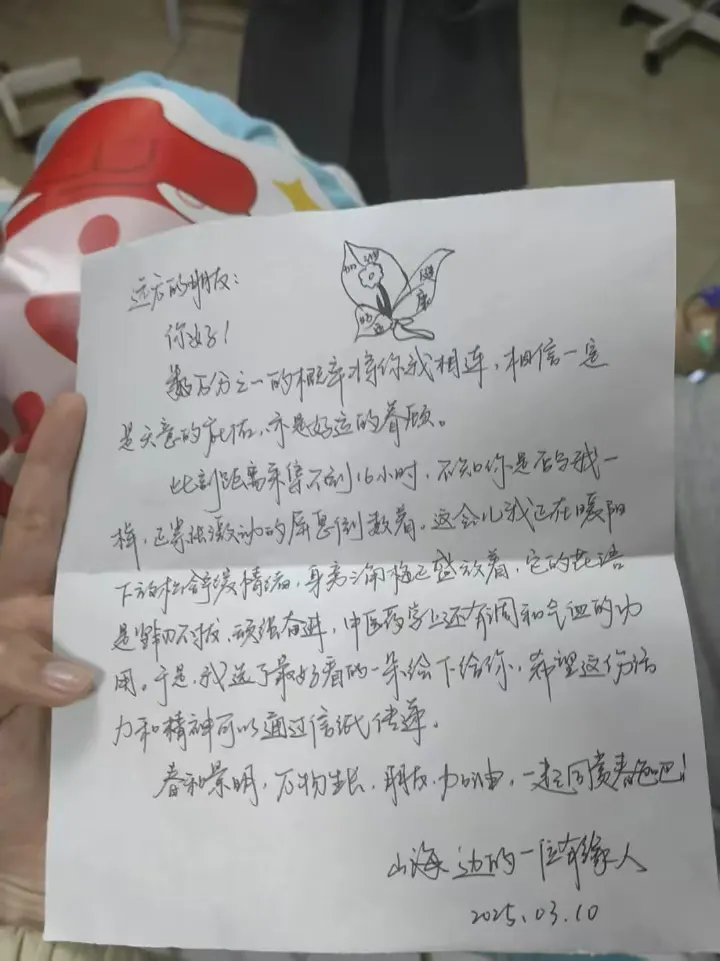 加油
健康
好运
远方的朋友：
你好！
数万分之一的概率将你我相连，相信一定
是天意的庇佑，亦是好运的眷顾。
此刻距离采集不到16小时，不知你是否与我一
样，正紧张激动的屏息倒数着。这会儿我正在暖阳
下放松舒缓情绪，身旁三角梅正盛放着，它的花语
是坚韧不拔，顽强奋进，中医药学上还有调和气血的功
用。于是，我选了最好看的一朵绘下给你，希望这份活
力和精神可以通过信纸传递。
春和景明，万物生长，朋友，加油，一起同赏春色吧！
山海边的一位有缘人
2025.03.10